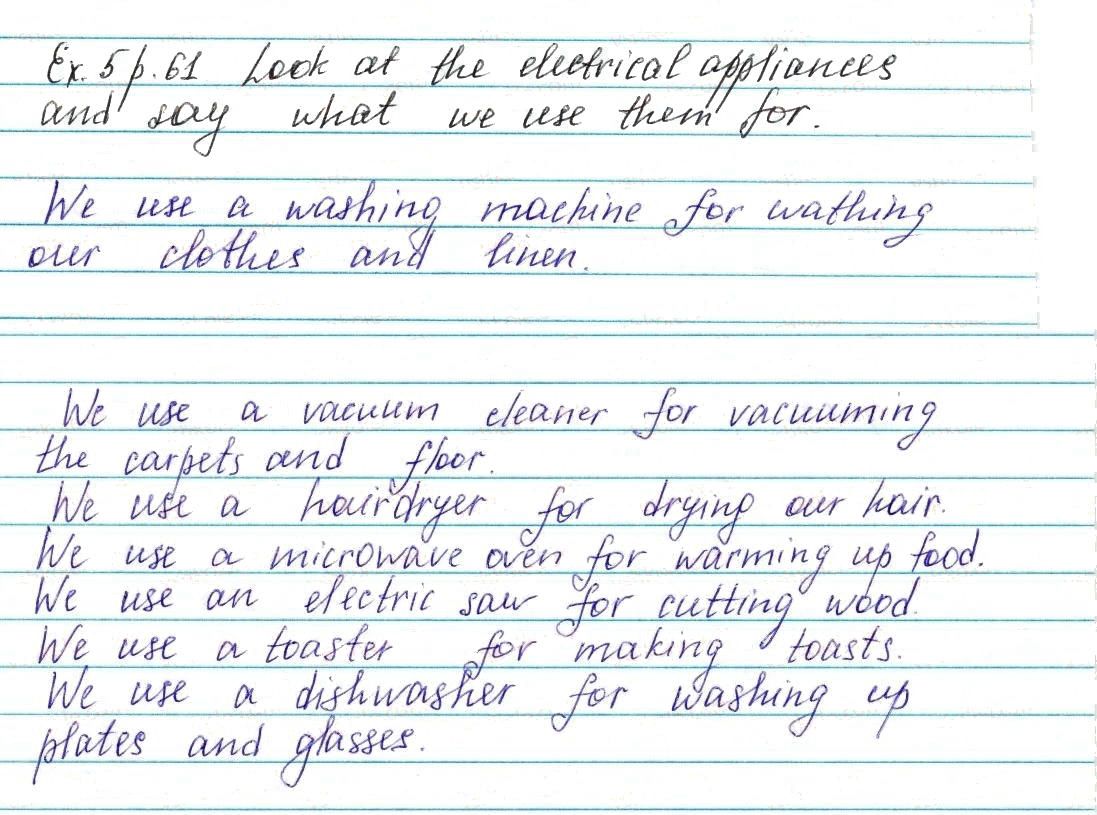 Ex. 5 p. 61 Look at the electrical appliances
and say what we use them for.
We use a washing machine for wathing
our clothes and linen.
We use a vacuum cleaner for vacuuming
the carpets and floor.
We use a hairdryer for drying our hair.
We use a microwave oven for warming up food.
We use an electric saw for cutting wood.
We use a toaster for making toasts.
We use a dishwasher for washing up
plates and glasses.